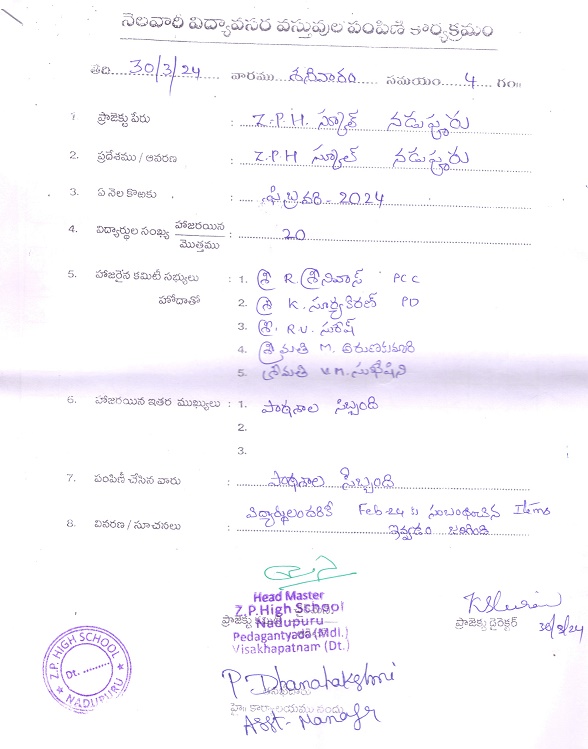 నెలవారీ విద్యావసర వస్తువుల పంపిణీ కార్యక్రమం
తేది 30/3/24 వారము శనివారం సమయం 4 గం॥
1. ప్రాజెక్టు పేరు : Z.P.H. స్కూల్ నడుపూరు
2. ప్రదేశము / ఆవరణ : Z.P.H స్కూల్ నడుపూరు
3. ఏ నెల కొఱకు : ఫిబ్రవరి - 2024
4. విద్యార్థుల సంఖ్య హాజరయిన / మొత్తము : 20
5. హాజరైన కమిటీ సభ్యులు : 1. శ్రీ R. శ్రీనివాస్ PCC
హోదాతో 2. శ్రీ K. సూర్యకిరణ్ PD
3. శ్రీ. R.V. సురేష్
4. శ్రీమతి M. అరుణకుమారి
5. శ్రీమతి V.M. సుభాషిని
6. హాజరయిన ఇతర ముఖ్యులు : 1. పాఠశాల సిబ్బంది
2.
3.
7. పంపిణీ చేసిన వారు : పాఠశాల సిబ్బంది
విద్యార్థులందరికీ Feb-24 కు సంబంధించిన Items
8. వివరణ / సూచనలు : ఇవ్వడం జరిగింది
Head Master
Z.P.High School
Nadupuru
Pedagantyada (Mdl.)
Visakhapatnam (Dt.)
ప్రాజెక్టు డైరెక్టర్ 30/3/24
Z.P. HIGH SCHOOL
Dt. ..........
★ NADUPURU ★
P Dhanalakshmi
Asst-Manager